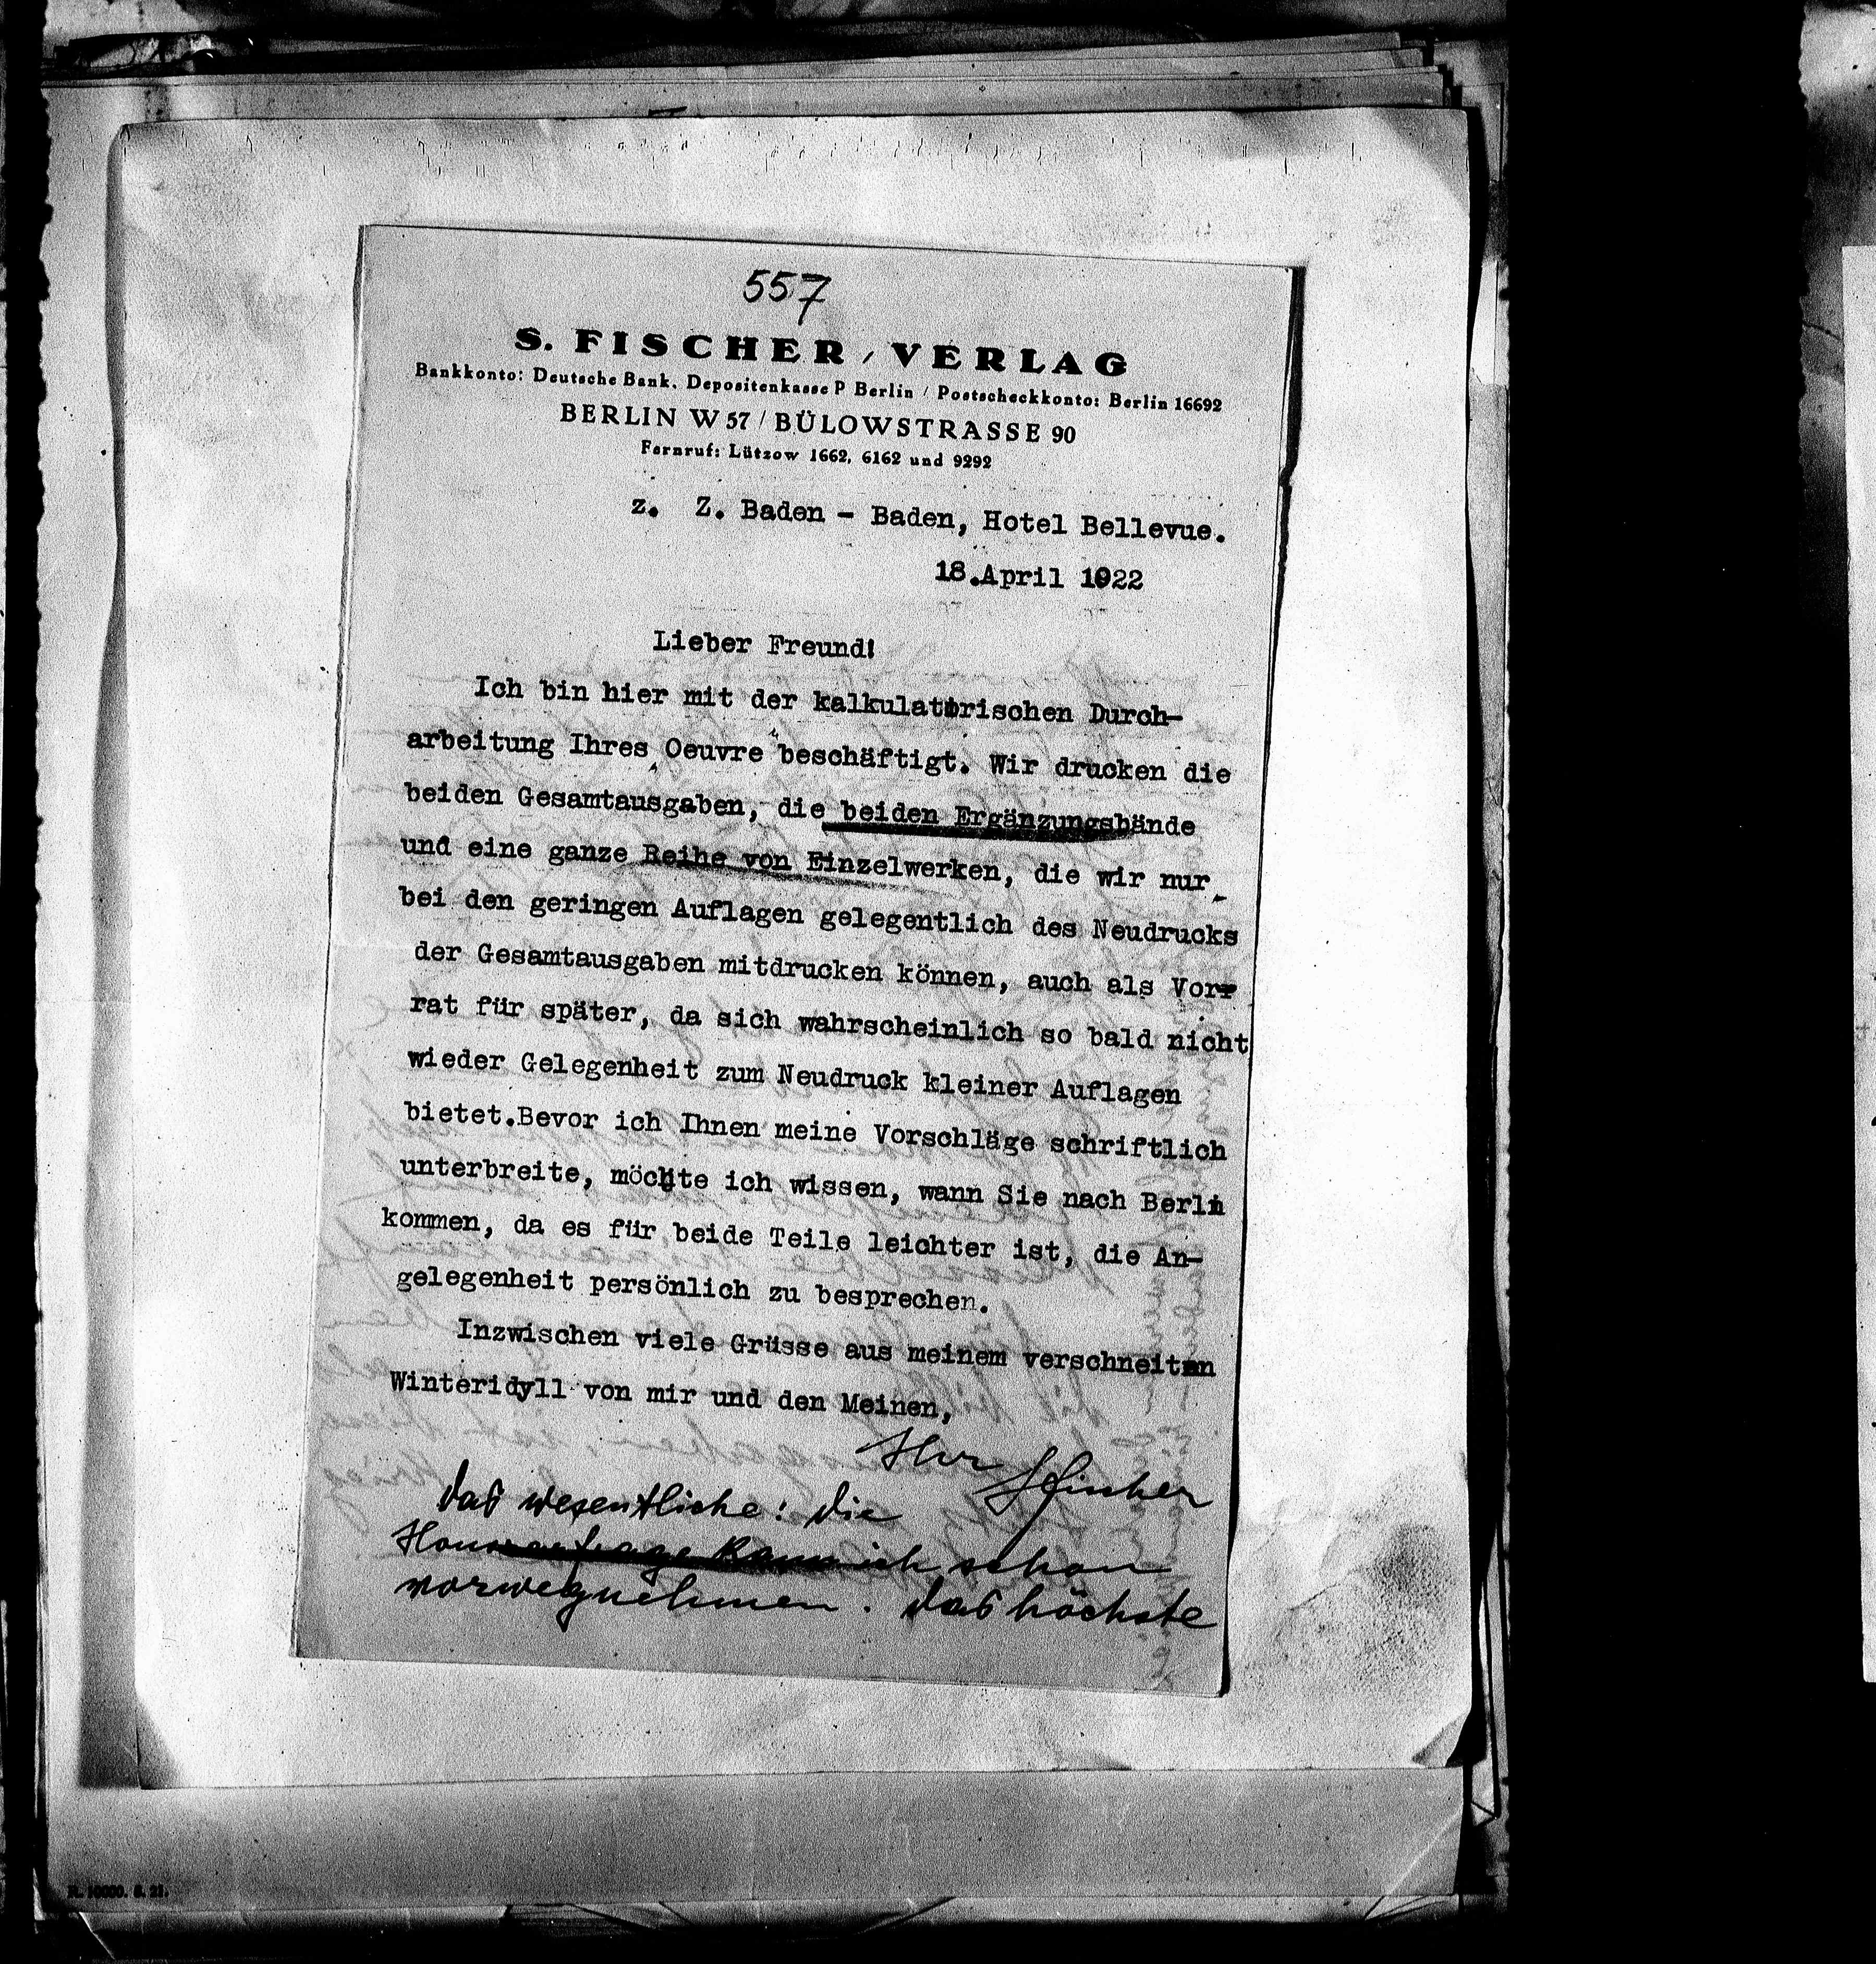 557
S. FISCHER / VERLAG
Bankkonto: Deutsche Bank, Depositenkasse P Berlin / Postscheckkonto: Berlin 16692
BERLIN W 57 / BÜLOWSTRASSE 90
Fernruf: Lützow 1662, 6162 und 9292
z. Z. Baden - Baden, Hotel Bellevue.
18.April 1922
Lieber Freund!
Ich bin hier mit der kalkulatorischen Durch-
arbeitung Ihres Oeuvre beschäftigt. Wir drucken die
beiden Gesamtausgaben, die beiden Ergänzungsbände
und eine ganze Reihe von Einzelwerken, die wir nur
bei den geringen Auflagen gelegentlich des Neudrucks
der Gesamtausgaben mitdrucken können, auch als Vorr
rat für später, da sich wahrscheinlich so bald nicht
wieder Gelegenheit zum Neudruck kleiner Auflagen
bietet.Bevor ich Ihnen meine Vorschläge schriftlich
unterbreite, möchte ich wissen, wann Sie nach Berlin
kommen, da es für beide Teile leichter ist, die An-
gelegenheit persönlich zu besprechen.
Inzwischen viele Grüsse aus meinem verschneiten
Winteridyll von mir und den Meinen,
Ihr SFischer
Das wesentliche: die
Honorarfrage kann ich schon
vorwegnehmen. Das höchste